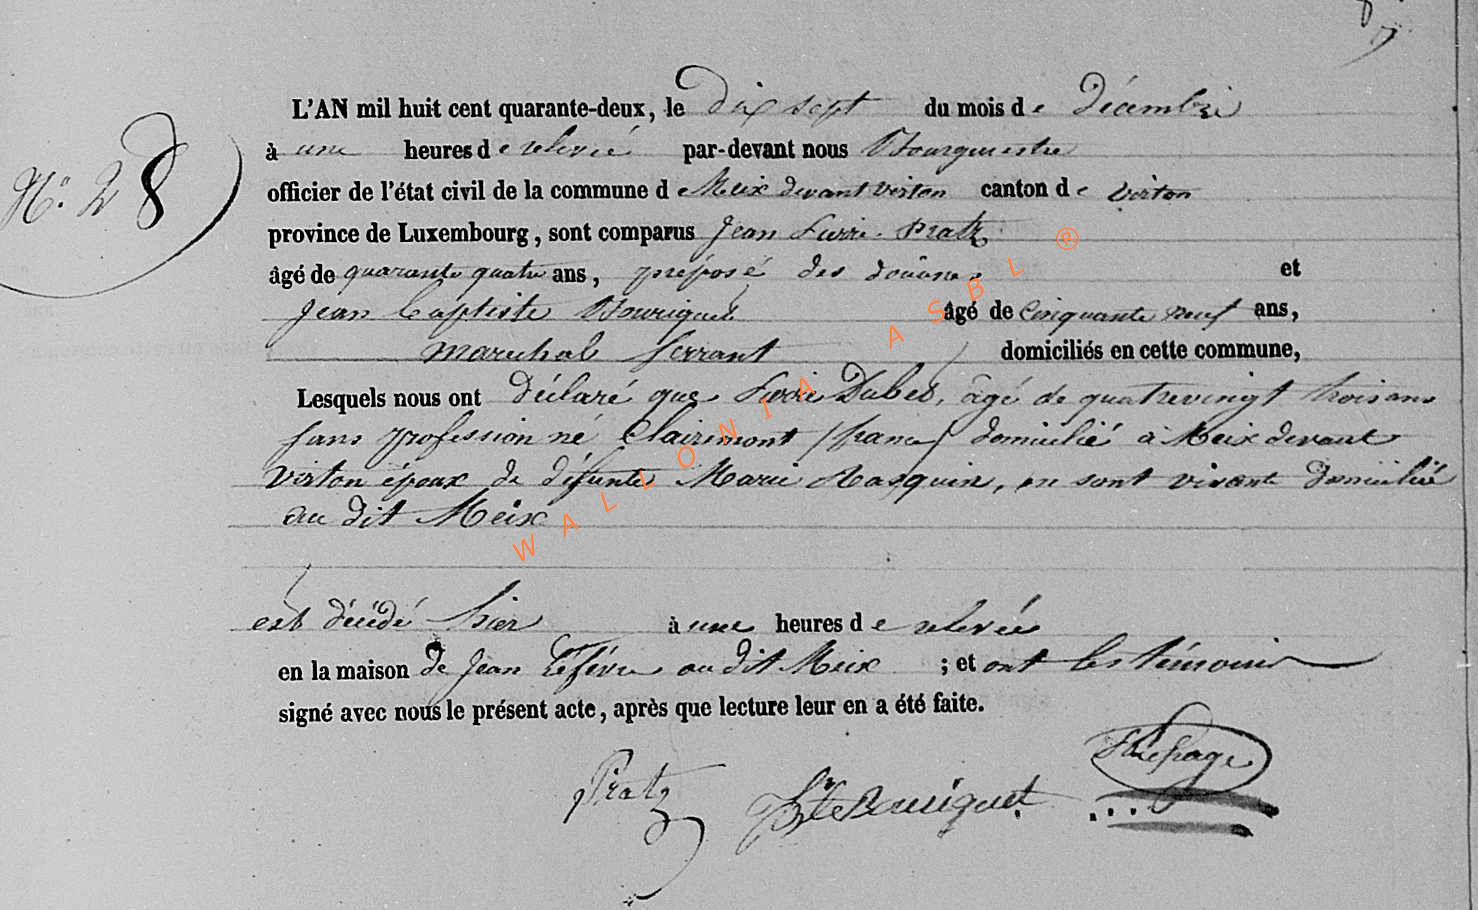 L'AN mil huit cent quarante-deux, le dix sept du mois de Décembre
N.° 28
à une heures de relevée par-devant nous Bourguestre
officier de l'état civil de la commune de Meix devant virton canton de virton
province de Luxembourg, sont comparus Jean Pierre Pratz
âgé de quarante quatre ans, préposé des douanes et
Jean Baptiste Bouriguet âgé de Cinquante neuf ans,
marechal ferrant domiciliés en cette commune,
Lesquels nous ont Déclaré que Pierre Dubed, âgé de quatrevingt trois ans
sans profession né Clairemont (france) domicilié à Meix devant
virton époux de défunte Marie Rasquin, en sont vivant domicilié
au dit Meix
est décédé hier à une heures de relevée
en la maison de Jean Lefévre au dit Meix ; et ont les témoins
signé avec nous le présent acte, après que lecture leur en a été faite.
Pratz Bte Bouriguet Lepage
WALLONIA ASBL ®